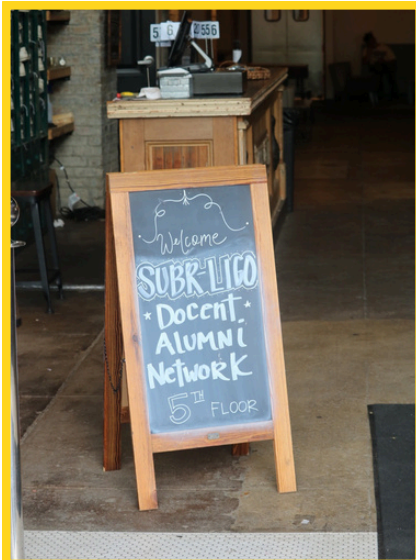 Welcome
SUBR-LIGO
Docent
ALUMNi
NetwoRK
5TH FLOOR